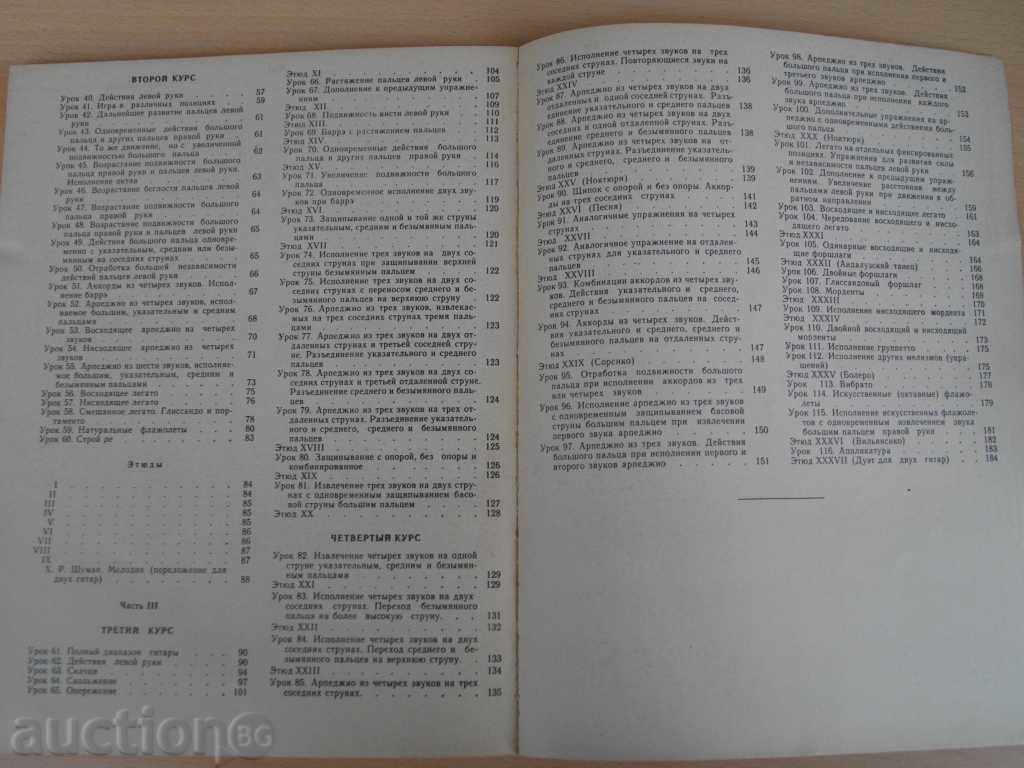 ВТОРОЙ КУРС
Урок 40. Действия левой руки 57
Урок 41. Игра в различных позициях 59
Урок 42. Дальнейшее развитие пальцев левой
руки 61
Урок 43. Одновременные действия большого
пальца и других пальцев правой руки 62
Урок 44. То же движение, но с увеличенной
подвижностью большого пальца 62
Урок 45. Возрастание подвижности большого
пальца правой руки и пальцев левой руки.
Исполнение октав 63
Урок 46. Возрастание беглости пальцев левой
руки 64
Урок 47. Возрастание подвижности большого
пальца правой руки 64
Урок 48. Возрастание подвижности большого
пальца правой руки и пальцев левой руки 65
Урок 49. Действия большого пальца одновремен-
но с указательным, средним или безы-
мянным на соседних струнах 65
Урок 50. Отработка большей независимости
действий пальцев левой руки 66
Урок 51. Аккорды из четырех звуков. Испол-
нение баррэ 67
Урок 52. Арпеджио из четырех звуков, испол-
няемое большим, указательным и средним
пальцами 68
Урок 53. Восходящее арпеджио из четырех
звуков 70
Урок 54. Нисходящее арпеджио из четырех
звуков 71
Урок 55. Арпеджио из шести звуков, исполня-
емое большим, указательным, средним и
безымянным пальцами 73
Урок 56. Восходящее легато 75
Урок 57. Нисходящее легато 76
Урок 58. Смешанное легато. Глиссандо и пор-
таменто 78
Урок 59. Натуральные флажолеты 80
Урок 60. Строй ре 83
Этюды
I 84
II 84
III 85
IV 85
V 85
VI 86
VII 86
VIII 87
IX 87
X. Р. Шуман. Мелодия (переложение для
двух гитар) 88
Часть III
ТРЕТИЙ КУРС
Урок 61. Полный диапазон гитары 90
Урок 62. Действия левой руки 90
Урок 63. Скачки 94
Урок 64. Скольжение 97
Урок 65. Опережение 101
Этюд XI 104
Урок 66. Растяжение пальцев левой руки 105
Урок 67. Дополнение к предыдущим упражне-
ниям 107
Этюд XII 109
Урок 68. Подвижность кисти левой руки 110
Этюд XIII 111
Урок 69. Баррэ с растяжением пальцев 112
Этюд XIV 113
Урок 70. Одновременные действия большого
пальца и других пальцев правой руки 114
Этюд XV 116
Урок 71. Увеличение подвижности большого
пальца 117
Урок 72. Одновременное исполнение двух зву-
ков при баррэ 119
Этюд XVI 120
Урок 73. Защипывание одной и той же струны
указательным, средним и безымянным паль-
цами 120
Этюд XVII 121
Урок 74. Исполнение трех звуков на двух со-
седних струнах при защипывании верхней
струны безымянным пальцем 122
Урок 75. Исполнение трех звуков на двух со-
седних струнах с переносом среднего и бе-
зымянного пальцев на верхнюю струну 122
Урок 76. Арпеджио из трех звуков, извлекае-
мых на трех соседних струнах тремя паль-
цами 123
Урок 77. Арпеджио из трех звуков на двух от-
даленных струнах и третьей соседней стру-
не. Разъединение указательного и среднего
пальцев 123
Урок 78. Арпеджио из трех звуков на двух со-
седних струнах и третьей отдаленной струне.
Разъединение среднего и безымянного
пальцев 124
Урок 79. Арпеджио из трех звуков на трех от-
даленных струнах. Разъединение указатель-
ного и среднего, среднего и безымянного
пальцев 124
Этюд XVIII 125
Урок 80. Защипывание с опорой, без опоры и
комбинированное 126
Этюд XIX 126
Урок 81. Извлечение трех звуков на двух стру-
нах с одновременным защипыванием басо-
вой струны большим пальцем 127
Этюд XX 128
ЧЕТВЕРТЫЙ КУРС
Урок 82. Извлечение четырех звуков на одной
струне указательным, средним и безымян-
ным пальцами 129
Этюд XXI 129
Урок 83. Исполнение четырех звуков на двух
соседних струнах. Переход безымянного
пальца на более высокую струну 131
Этюд XXII 132
Урок 84. Исполнение четырех звуков на двух
соседних струнах. Переход среднего и бе-
зымянного пальцев на верхнюю струну 133
Этюд XXIII 134
Урок 85. Арпеджио из четырех звуков на трех
соседних струнах 135
Урок 86. Исполнение четырех звуков на трех
соседних струнах. Повторяющиеся звуки на
каждой струне 136
Этюд XXIV 136
Урок 87. Арпеджио из четырех звуков на двух
отдаленных и одной соседней струнах. Разъ-
единение указательного и среднего пальцев 138
Урок 88. Арпеджио из четырех звуков на двух
соседних и одной отдаленной струнах. Разъ-
единение среднего и безымянного пальцев 138
Урок 89. Арпеджио из четырех звуков на от-
даленных струнах. Разъединение указатель-
ного и среднего, среднего и безымянного
пальцев 139
Этюд XXV (Ноктюрн) 139
Урок 90. Щипок с опорой и без опоры. Аккор-
ды на трех соседних струнах 141
Этюд XXVI (Песня) 142
Урок 91. Аналогичные упражнения на четырех
струнах 143
Этюд XXVII 144
Урок 92. Аналогичное упражнение на отдален-
ных струнах для указательного и среднего
пальцев 145
Этюд XXVIII 146
Урок 93. Комбинации аккордов из четырех зву-
ков. Действия указательного и среднего,
среднего и безымянного пальцев на сосед-
них струнах 147
Урок 94. Аккорды из четырех звуков. Действия
указательного и среднего, среднего
и безымянного пальцев на отдаленных стру-
нах 147
Этюд XXIX (Сорсико) 148
Урок 95. Отработка подвижности большого
пальца при исполнении аккордов из трех
или четырех звуков 149
Урок 96. Исполнение арпеджио из трех звуков
с одновременным защипыванием басовой
струны большим пальцем при извлечении
первого звука арпеджио 150
Урок 97. Арпеджио из трех звуков. Действия
большого пальца при исполнении первого и
второго звуков арпеджио 151
Урок 98. Арпеджио из трех звуков. Действия
большого пальца при исполнении первого и
третьего звуков арпеджио 152
Урок 99. Арпеджио из трех звуков. Действия
большого пальца при исполнении каждого
звука арпеджио 153
Урок 100. Дополнительные упражнения на ар-
педжио с одновременными действиями боль-
шого пальца 154
Этюд XXX (Ноктюрн) 155
Урок 101. Легато на отдельных фиксированных
позициях. Упражнения для развития силы
и независимости пальцев левой руки 156
Урок 102. Дополнение к предыдущим упраж-
нениям. Увеличение расстояния между
пальцами левой руки при движении в об-
ратном направлении 159
Урок 103. Восходящее и нисходящее легато 161
Урок 104. Чередование восходящего и нисхо-
дящего легато 163
Этюд XXXI 164
Урок 105. Одинарные восходящие и нисходя-
щие форшлаги 164
Этюд XXXII (Андалузский танец) 166
Урок 106. Двойные форшлаги 168
Урок 107. Глиссандовый форшлаг 168
Урок 108. Морденты 168
Этюд XXXIII 170
Урок 109. Исполнение нисходящего мордента 171
Этюд XXXIV 172
Урок 110. Двойной восходящий и нисходящий
морденты 173
Урок 111. Исполнение группетто 175
Урок 112. Исполнение других мелизмов (укра-
шений) 175
Этюд XXXV (Болеро) 177
Урок 113. Вибрато 178
Урок 114. Искусственные (октавные) флажо-
леты 179
Урок 115. Исполнение искусственных флажоле-
тов с одновременным извлечением звука
большим пальцем правой руки 181
Этюд XXXVI (Вильянсико) 182
Урок 116. Аппликатура 183
Этюд XXXVII (Дуэт для двух гитар) 184
auctionBG